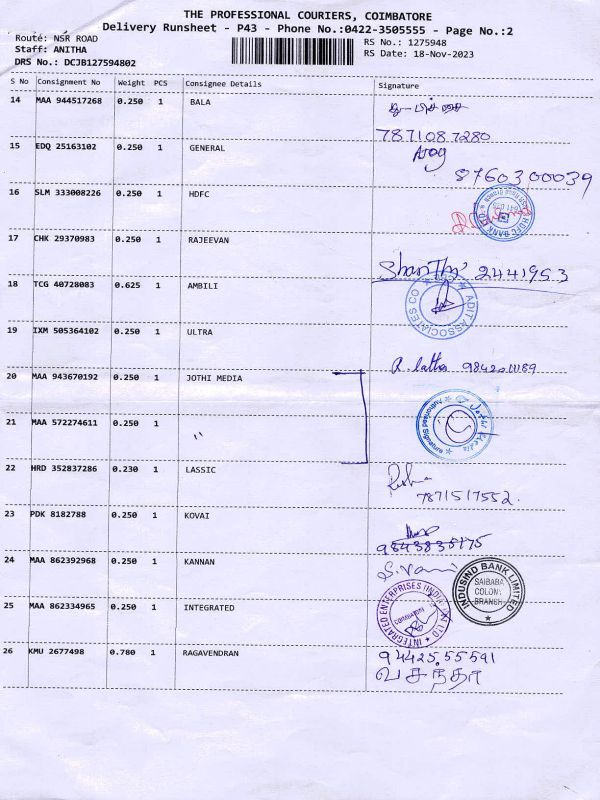 THE PROFESSIONAL COURIERS, COIMBATORE
Delivery Runsheet - P43 - Phone No.:0422-3505555 - Page No.:2
Route: NSR ROAD
RS No.: 1275948
Staff: ANITHA
RS Date: 18-Nov-2023
DRS No.: DCJB127594802
S No Consignment No Weight PCS Consignee Details Signature
14 MAA 944517268 0.250 1 BALA
7871087280
15 EDQ 25163102 0.250 1 GENERAL
8760300039
16 SLM 333008226 0.250 1 HDFC
HDFC BANK
17 CHK 29370983 0.250 1 RAJEEVAN
Shanthi 2441953
18 TCG 40728083 0.625 1 AMBILI
ADIT ASSOCIATES CO
19 IXM 505364102 0.250 1 ULTRA
R. latha
20 MAA 943670192 0.250 1 JOTHI MEDIA
Jothi Media
Authorised Signature
21 MAA 572274611 0.250 1 "
22 HRD 352837286 0.230 1 LASSIC
7871517552.
23 PDK 8182788 0.250 1 KOVAI
24 MAA 862392968 0.250 1 KANNAN
S. Vani
INDUSIND BANK LIMITED
SAIBABA
COLONY
BRANCH
25 MAA 862334965 0.250 1 INTEGRATED
INTEGRATED ENTERPRISES (INDIA) PVT LTD
COIMBATORE
26 KMU 2677498 0.780 1 RAGAVENDRAN
94425,55591
வசந்தா